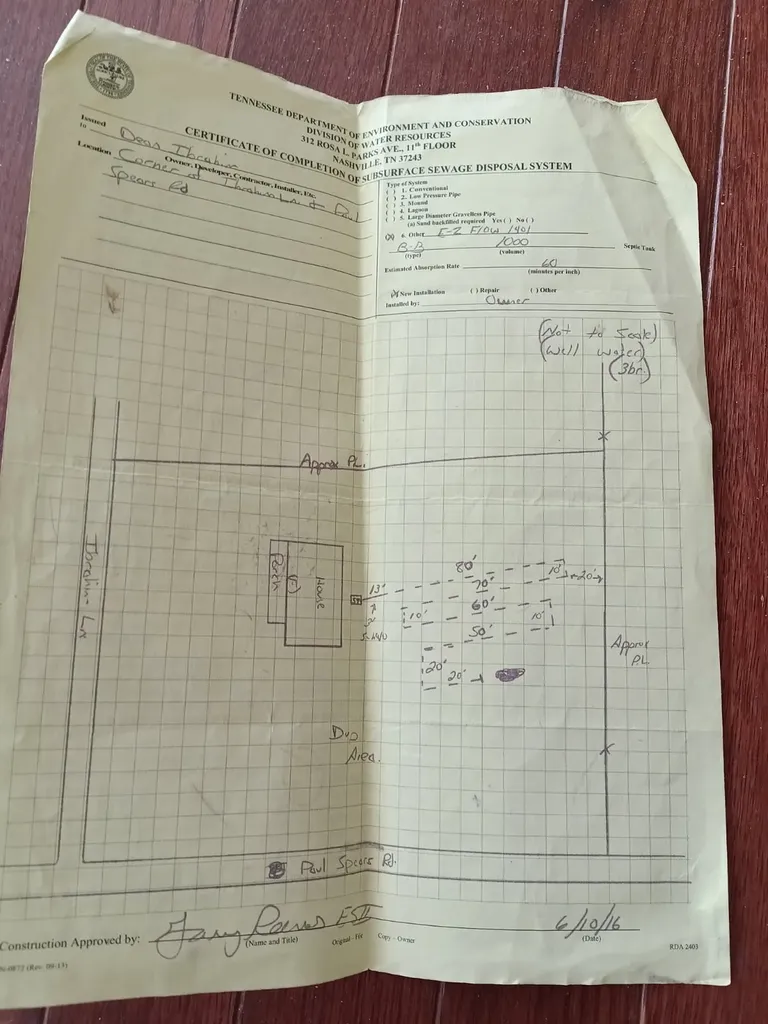 TENNESSEE DEPARTMENT OF ENVIRONMENT AND CONSERVATION
DIVISION OF WATER RESOURCES
312 ROSA L. PARKS AVE., 11th FLOOR
NASHVILLE, TN 37243
CERTIFICATE OF COMPLETION OF SUBSURFACE SEWAGE DISPOSAL SYSTEM
Issued to Dean Ibrahim
Owner, Developer, Contractor, Installer, Etc.
Location Corner of Ibrahim Lane + Paul
Spears Rd
Type of System
( ) 1. Conventional
( ) 2. Low Pressure Pipe
( ) 3. Mound
( ) 4. Lagoon
( ) 5. Large Diameter Gravelless Pipe
(a) Sand backfilled required Yes ( ) No ( )
(X) 6. Other E-Z Flow 1401
B-B 1000 Septic Tank
(type) (volume)
Estimated Absorption Rate 60
(minutes per inch)
(X) New Installation ( ) Repair ( ) Other
Installed by: Owner
(Not to Scale)
(Well water)
(3br.)
Approx P.L.
Ibrahim Ln
Porch
(F)
House
13'
80'
10'
20'
70'
60'
10'
10'
50'
20'
20'
Approx
P.L.
Dup
Area.
Paul Spears Rd.
Construction Approved by: ES II 6/10/16
(Name and Title) (Date)
Original - Copy - Owner
RDA 2403